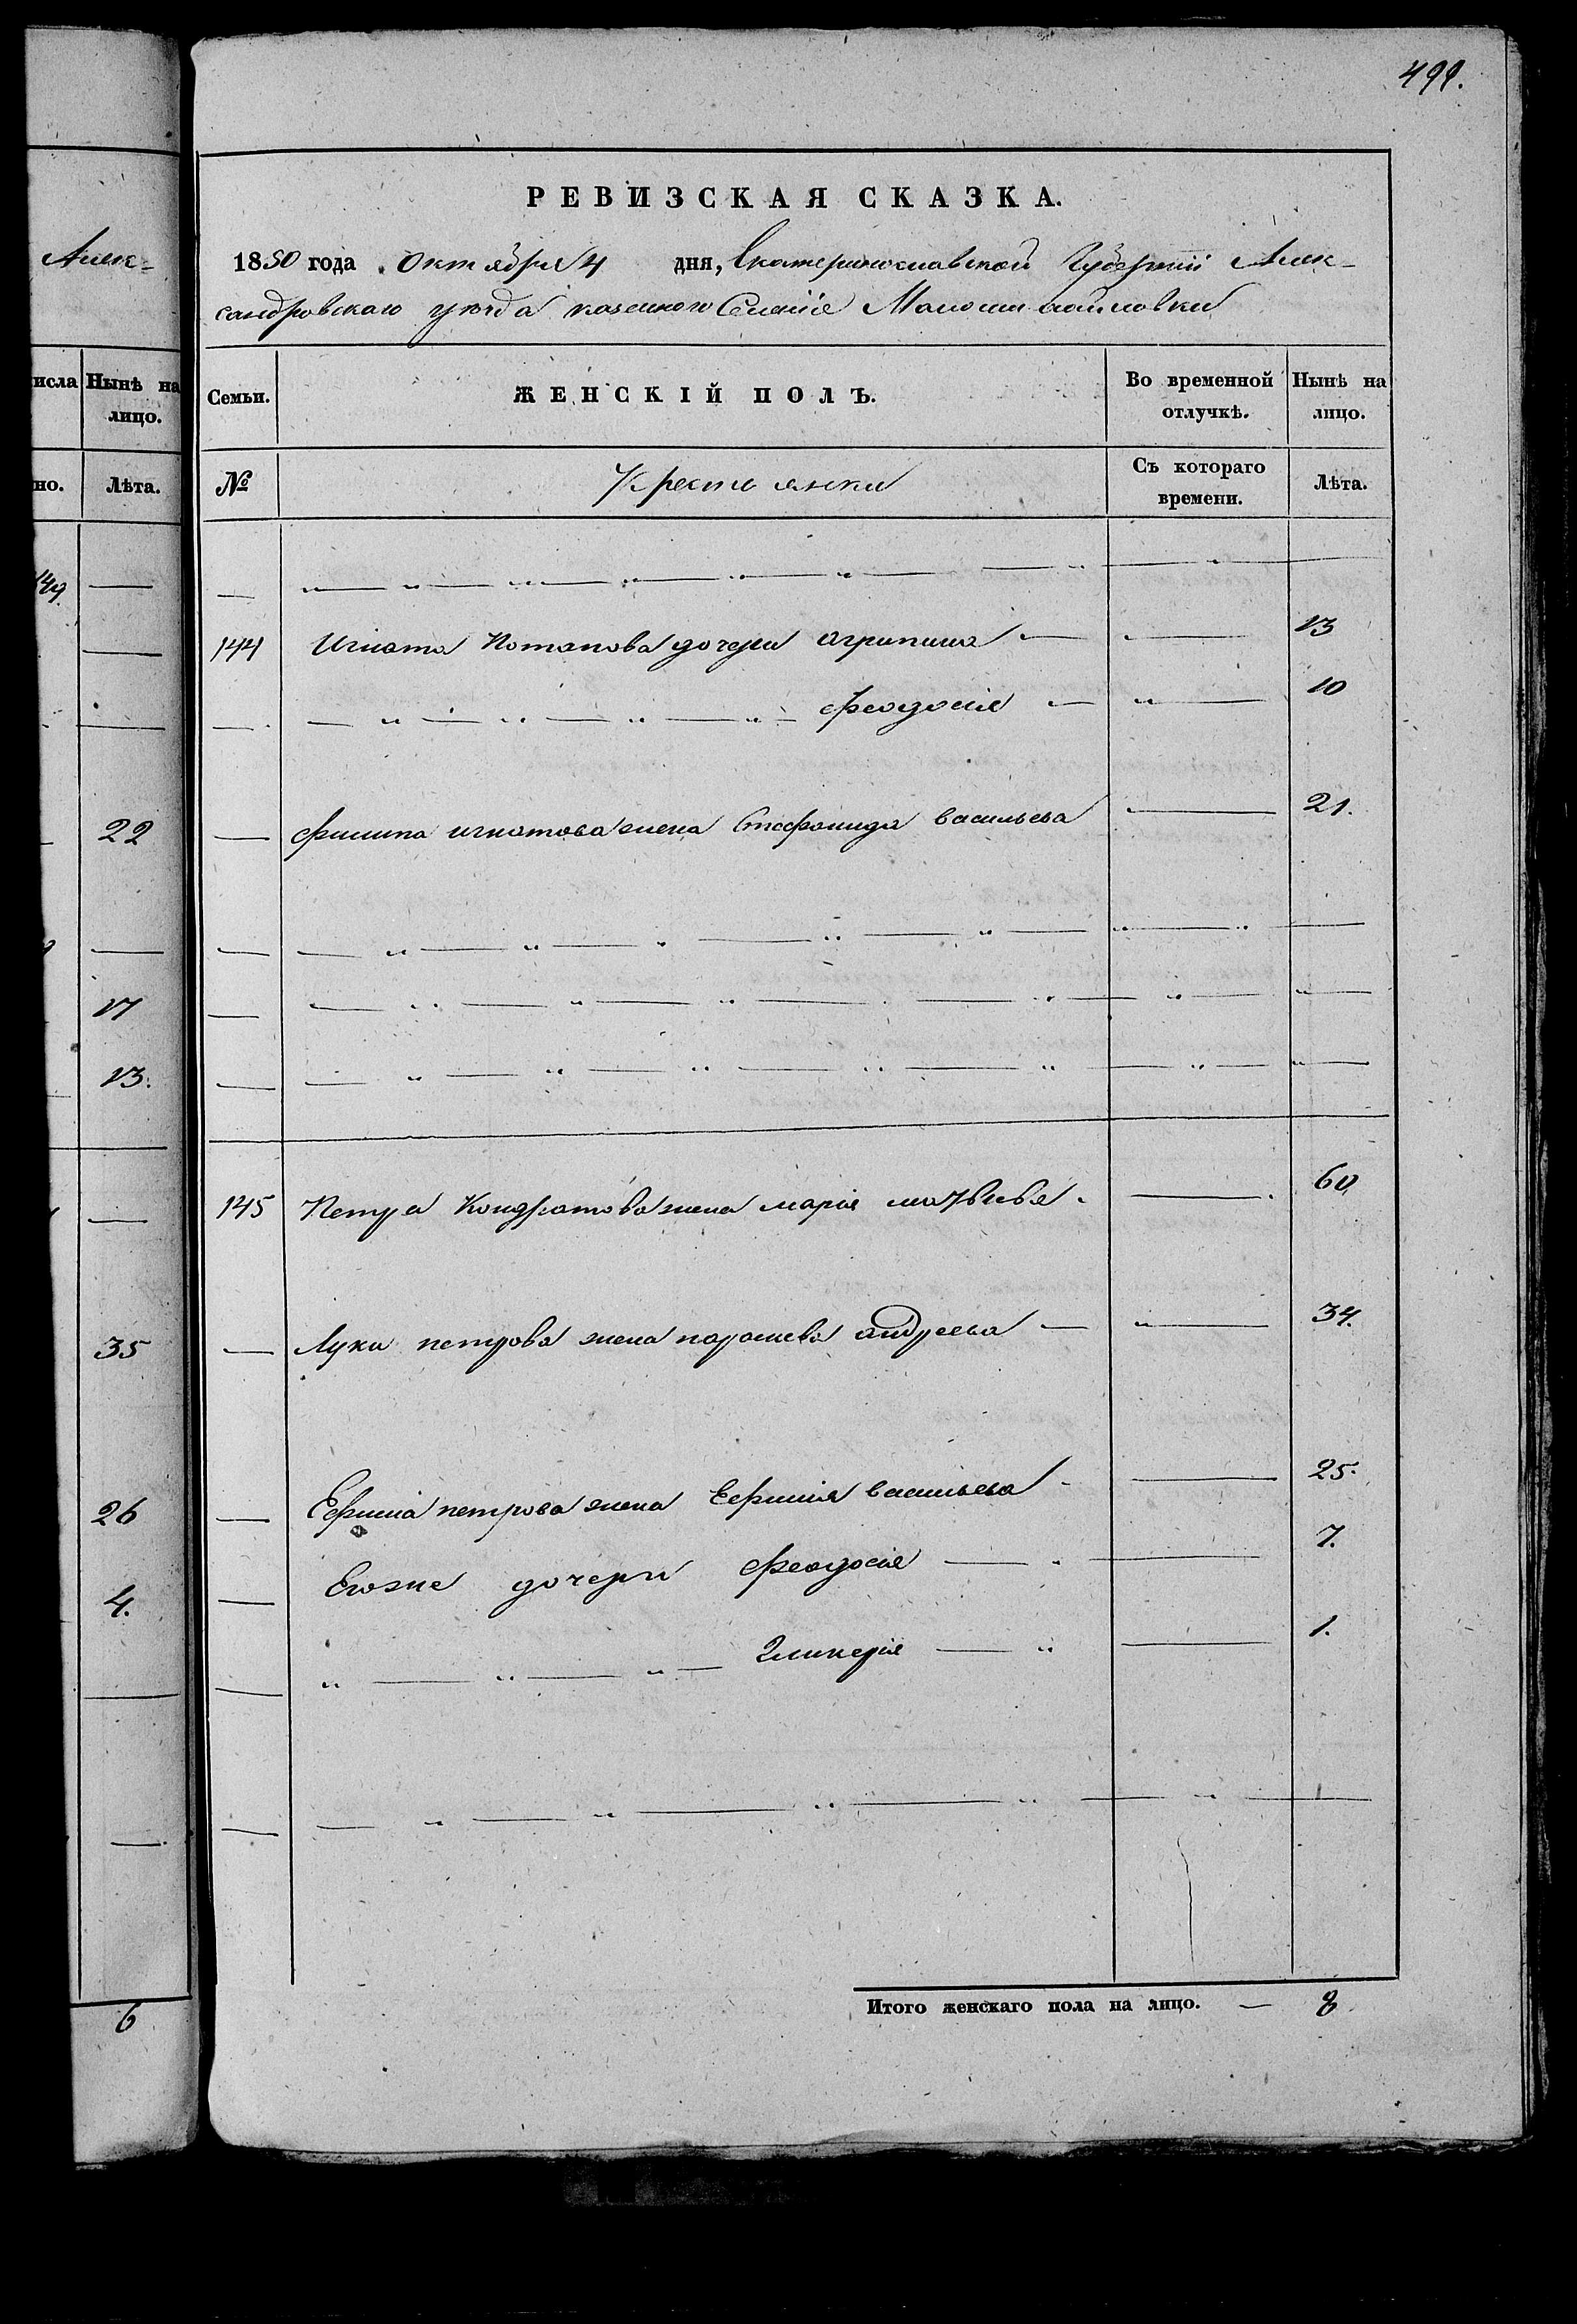 499.
РЕВИЗСКАЯ СКАЗКА.
1850 года Октября 4 дня, Екатеринославской Губернии Алек-
сандровскаго уезда казенного Селенія
Семьи. ЖЕНСКІЙ ПОЛЪ. Во временной отлучкѣ. Нынѣ на лицо.
№ Крестьянки Съ котораго времени. Лѣта.
144 Игната Потапова дочери Агрипина 13
Феодосія 10
Филипа игнатова жена Стефанида васильева 21.
145 Петра Кондратова жена марія матвіева 60
Луки петрова жена параскева андреева 34.
Ефима петрова жена Ефимія васильева 25.
Егоже дочери феодосія 7.
Гликерія 1.
Итого женскаго пола на лицо. — 8
Алек-
исла Нынѣ на лицо.
но. Лѣта.
22
17
13.
35
26
4.
6